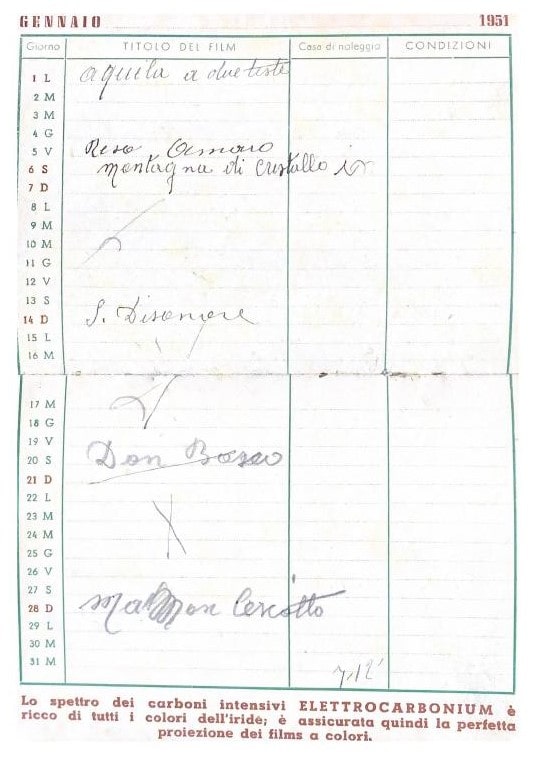 GENNAIO 1951
Giorno TITOLO DEL FILM Casa di noleggio CONDIZIONI
1 L aquila a due teste
2 M
3 M
4 G
5 V Riso Amaro
6 S montagna di cristallo
7 D
8 L
9 M
10 M
11 G
12 V
13 S
14 D S. Disonore
15 L
16 M
17 M
18 G
19 V
20 S Don Bosco
21 D
22 L
23 M
24 M
25 G
26 V
27 S
28 D Manon Lescotto
29 L
30 M
31 M
Lo spettro dei carboni intensivi ELETTROCARBONIUM è
ricco di tutti i colori dell'iride; è assicurata quindi la perfetta
proiezione dei films a colori.